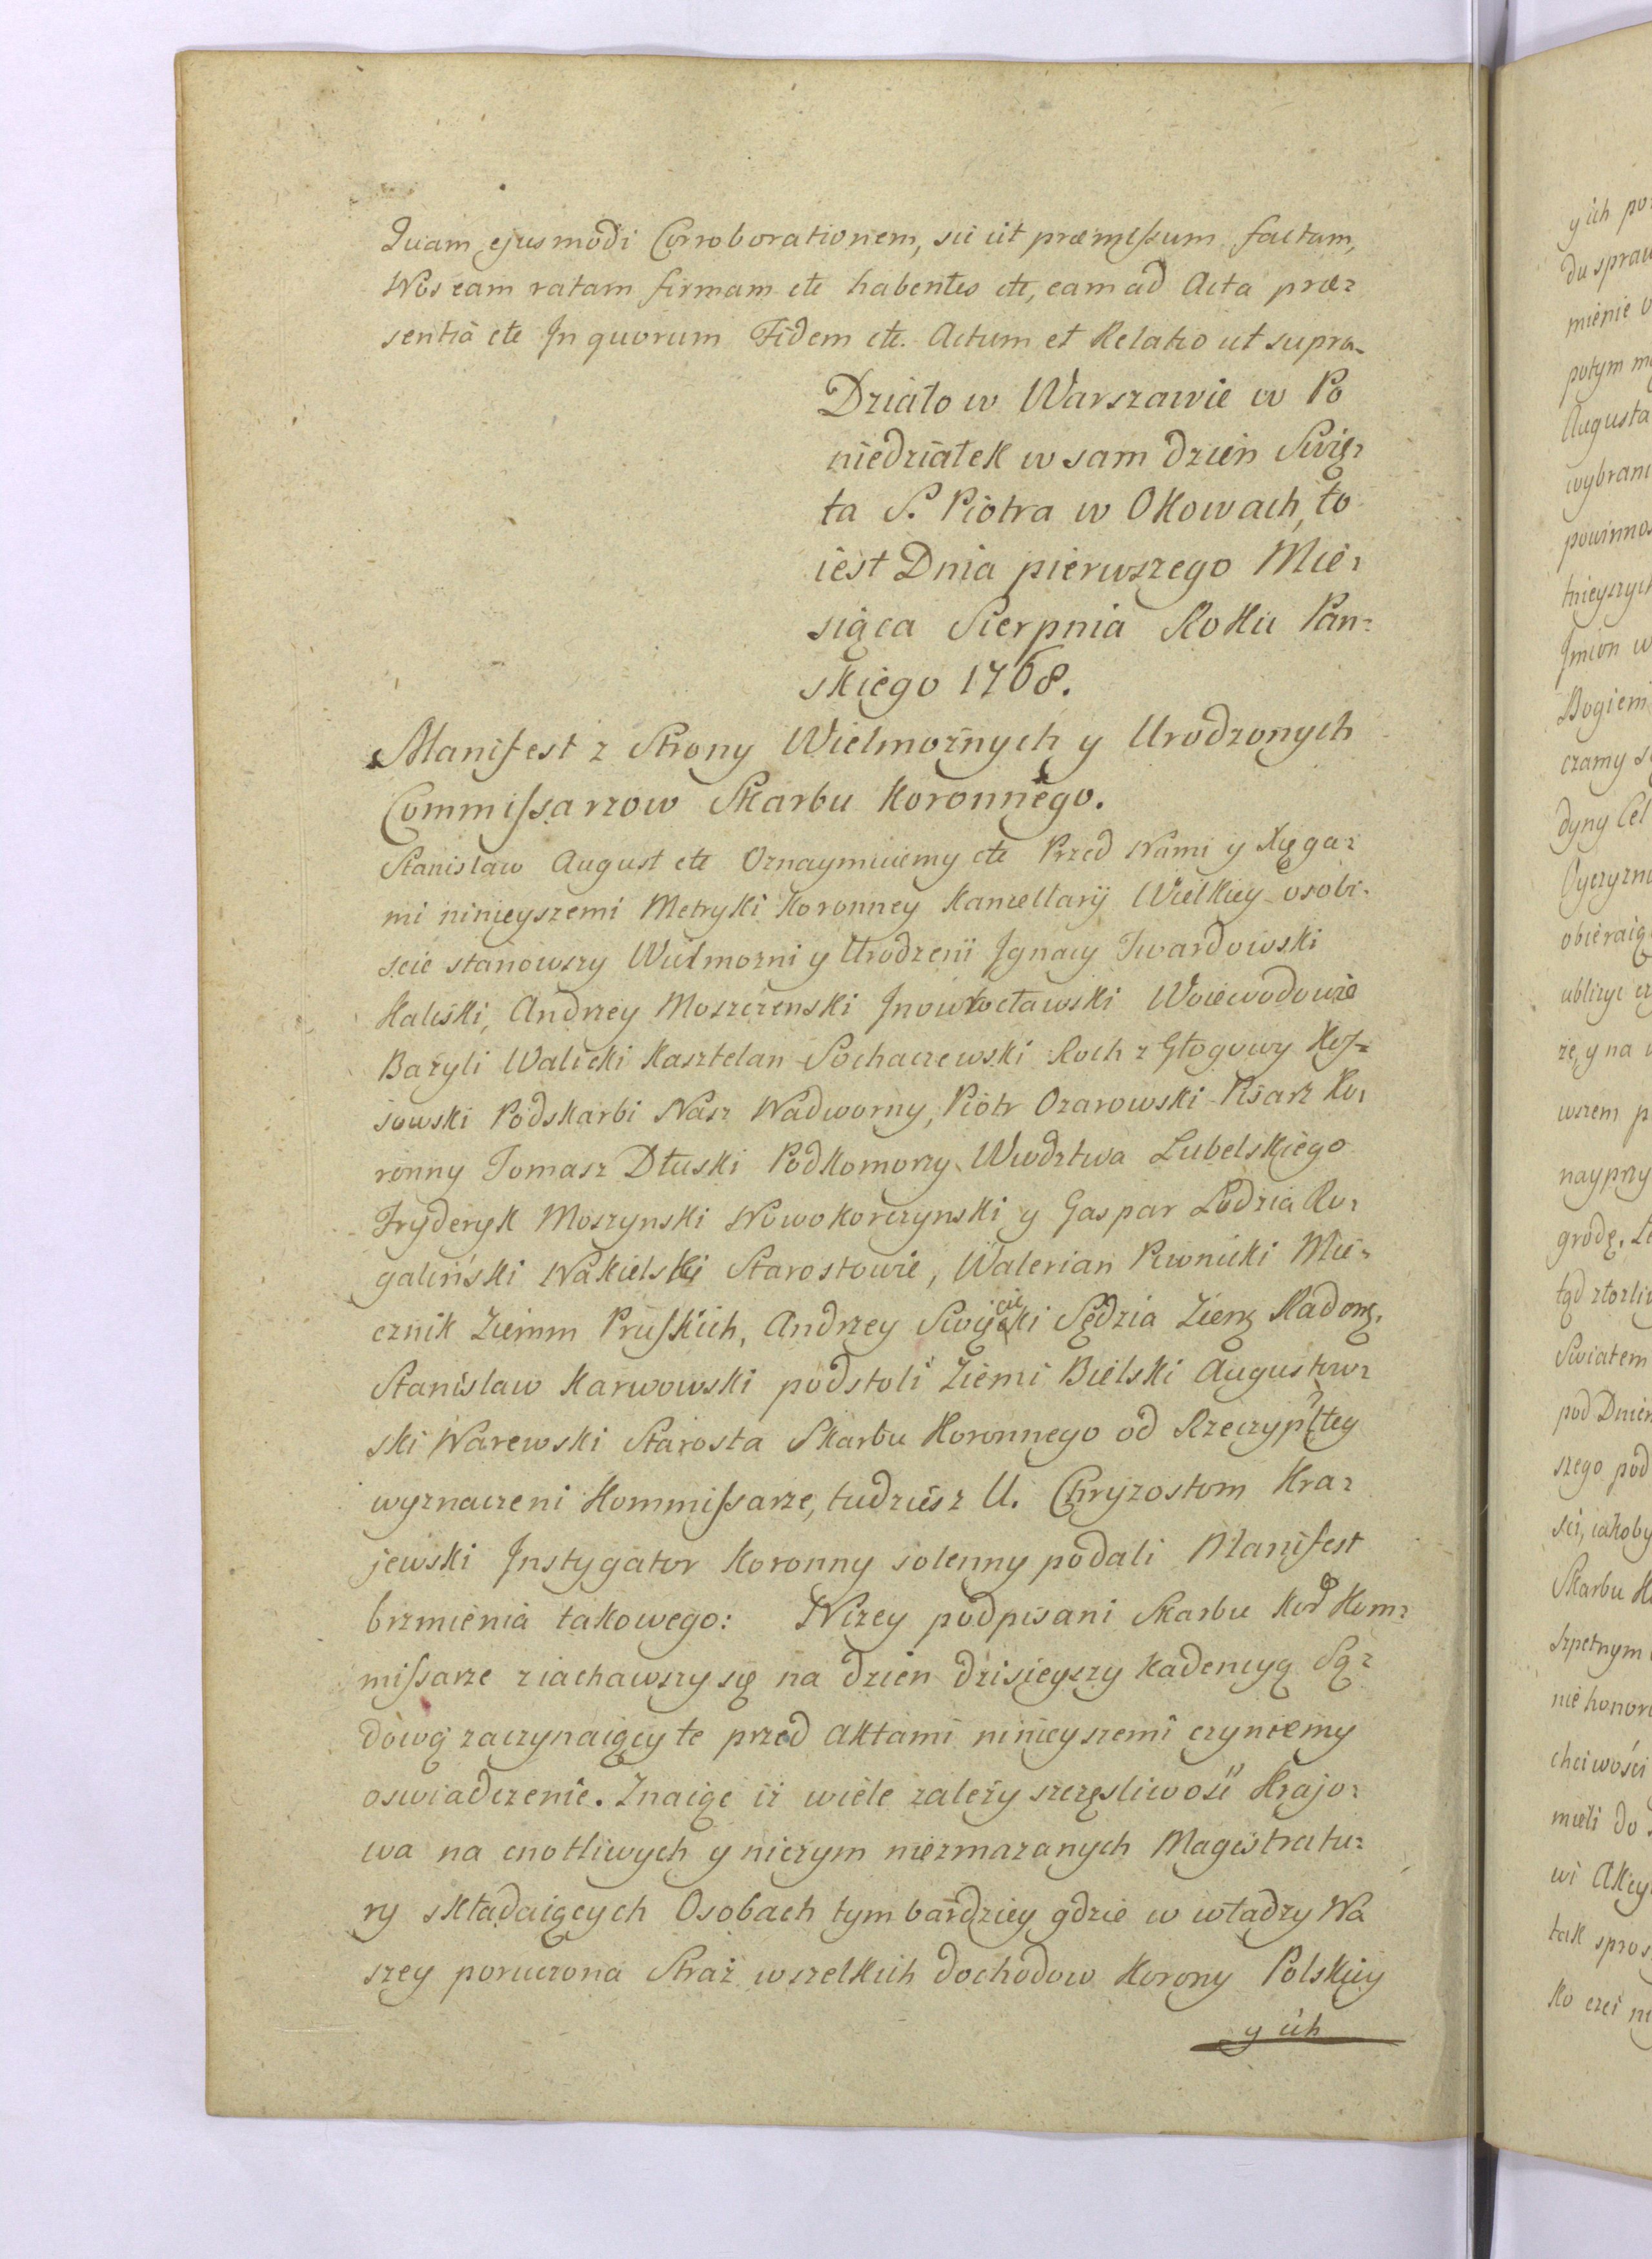 Quam ejusmodi Corroborationem, sic ut præmissum factam,
Nos eam ratam firmam etc habentes etc, eam ad Acta præ=
sentia etc In quorum Fidem etc. Actum et Relatio ut supra.
Działo w Warszawie w Po
niedziałek w sam dzień Swię=
ta S. Piotra w Okowach, to
iest Dnia pierwszego Mie=
siąca Sierpnia Roku Pan=
skiego 1768.
Manifest z Strony Wielmożnych y Urodzonych
Commissarzow Skarbu Koronnego.
Stanisław August etc Oznaymuiemy etc Przed Nami y Xięga=
mi ninieyszemi Metryki Koronney Kancellaryi Wielkiey osobi=
scie stanowszy Wielmozni y Urodzeni Ignacy Twardowski
Kaliski, Andrzey Moszczenski Inowrocławski Woiewodowie
Bazyli Walicki Kasztelan Sochaczewski Roch z Głogowy Kos=
sowski Podskarbi Nasz Nadworny, Piotr Ozarowski Pisarz Ko=
ronny Tomasz Dłuski Podkomorzy Wwdztwa Lubelskiego
Fryderyk Moszynski Nowokorczynski y Gaspar Lodzia Ro=
galiński Nakielski Starostowie, Walerian Piwnicki Mie=
cznik Ziemm Pruskich, Andrzey Swięcicki Sędzia Ziem Radom.
Stanisław Karwowski podstoli Ziemi Bielski Augustow=
ski Narewski Starosta Skarbu Koronnego od Rzeczypltey
wyznaczeni Kommissarze, tudziesz U. Chryzostom Kra=
jewski Instygator Koronny solenny podali Manifest
brzmienia takowego: Nizey podpisani Skarbu Kor Kom=
missarze ziachawszy się na dzien dzisieyszy kadencyą Są=
dową zaczynaiący te przed Aktami ninieyszemi czyniemy
oswiadczenie. Znaiąc iż wiele zależy szczęsliwość Krajo=
wa na cnotliwych y niczym niezmazanych Magistratu=
ry składaiących Osobach tym bardziey gdzie w władzy Na
szey poruczona Straż wszelkich dochodow Korony Polskiey
y ich
y ich
du spraw
mienie
potym
Augusta
tnieyszych
Imion w
Bogiem
czamy
dyny Cel
ze, y na
wszem p
nayprzy
Swiatem
szego pod
sci, iakoby
Szpetnym
chciwości
mieli do
ko czci